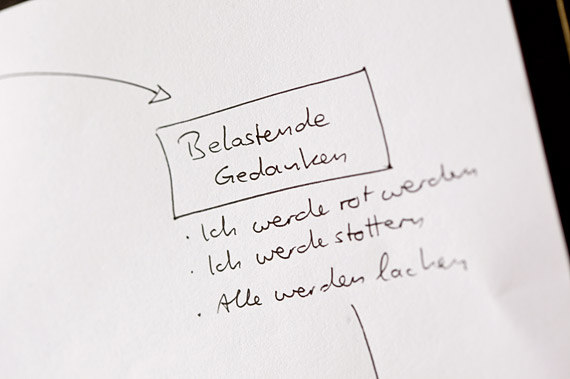 Belastende
Gedanken
· Ich werde rot werden
· Ich werde stottern
· Alle werden lachen